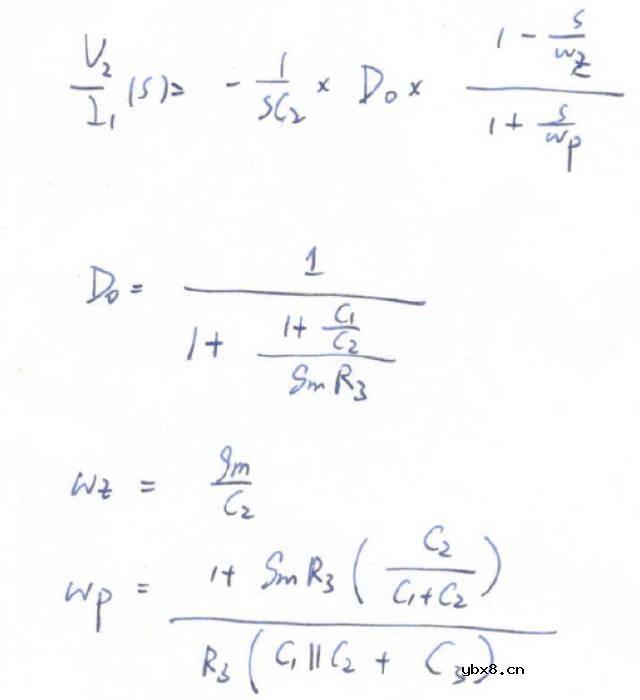 V₂/I₁ (s) = - 1/(sC₂) × D₀ × (1 - s/wz)/(1 + s/wp)
D₀ = 1/(1 + (1 + C₁/C₂)/(gmR₃))
wz = gm/C₂
wp = (1 + gmR₃ (C₂/(C₁+C₂)))/(R₃ (C₁||C₂ + C₃))
ybx8.cn